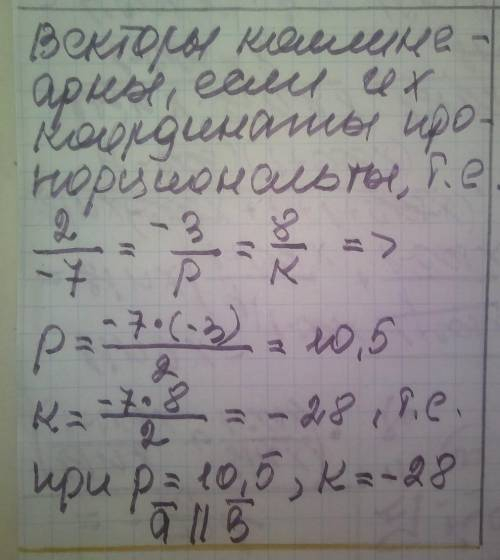 Векторы коллине-
арны, если их
координаты про-
порциональны, т.е.
2/-7 = -3/p = 8/к =>
p = -7·(-3)/2 = 10,5
к = -7·8/2 = -28, т.е.
при p = 10,5, к = -28
a̅ || b̅